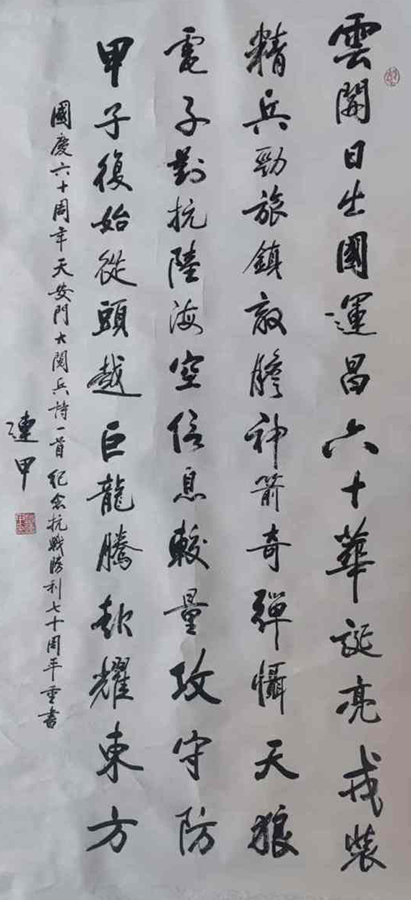 雲開日出國運昌六十華誕亮戎裝
精兵勁旅鎮敵膽神箭奇彈懾天狼
電子對抗陸海空信息較量攻守防
甲子復始從頭越巨龍騰起耀東方
國慶六十周年天安門大閱兵詩一首 紀念抗戰勝利七十周年重書
連甲